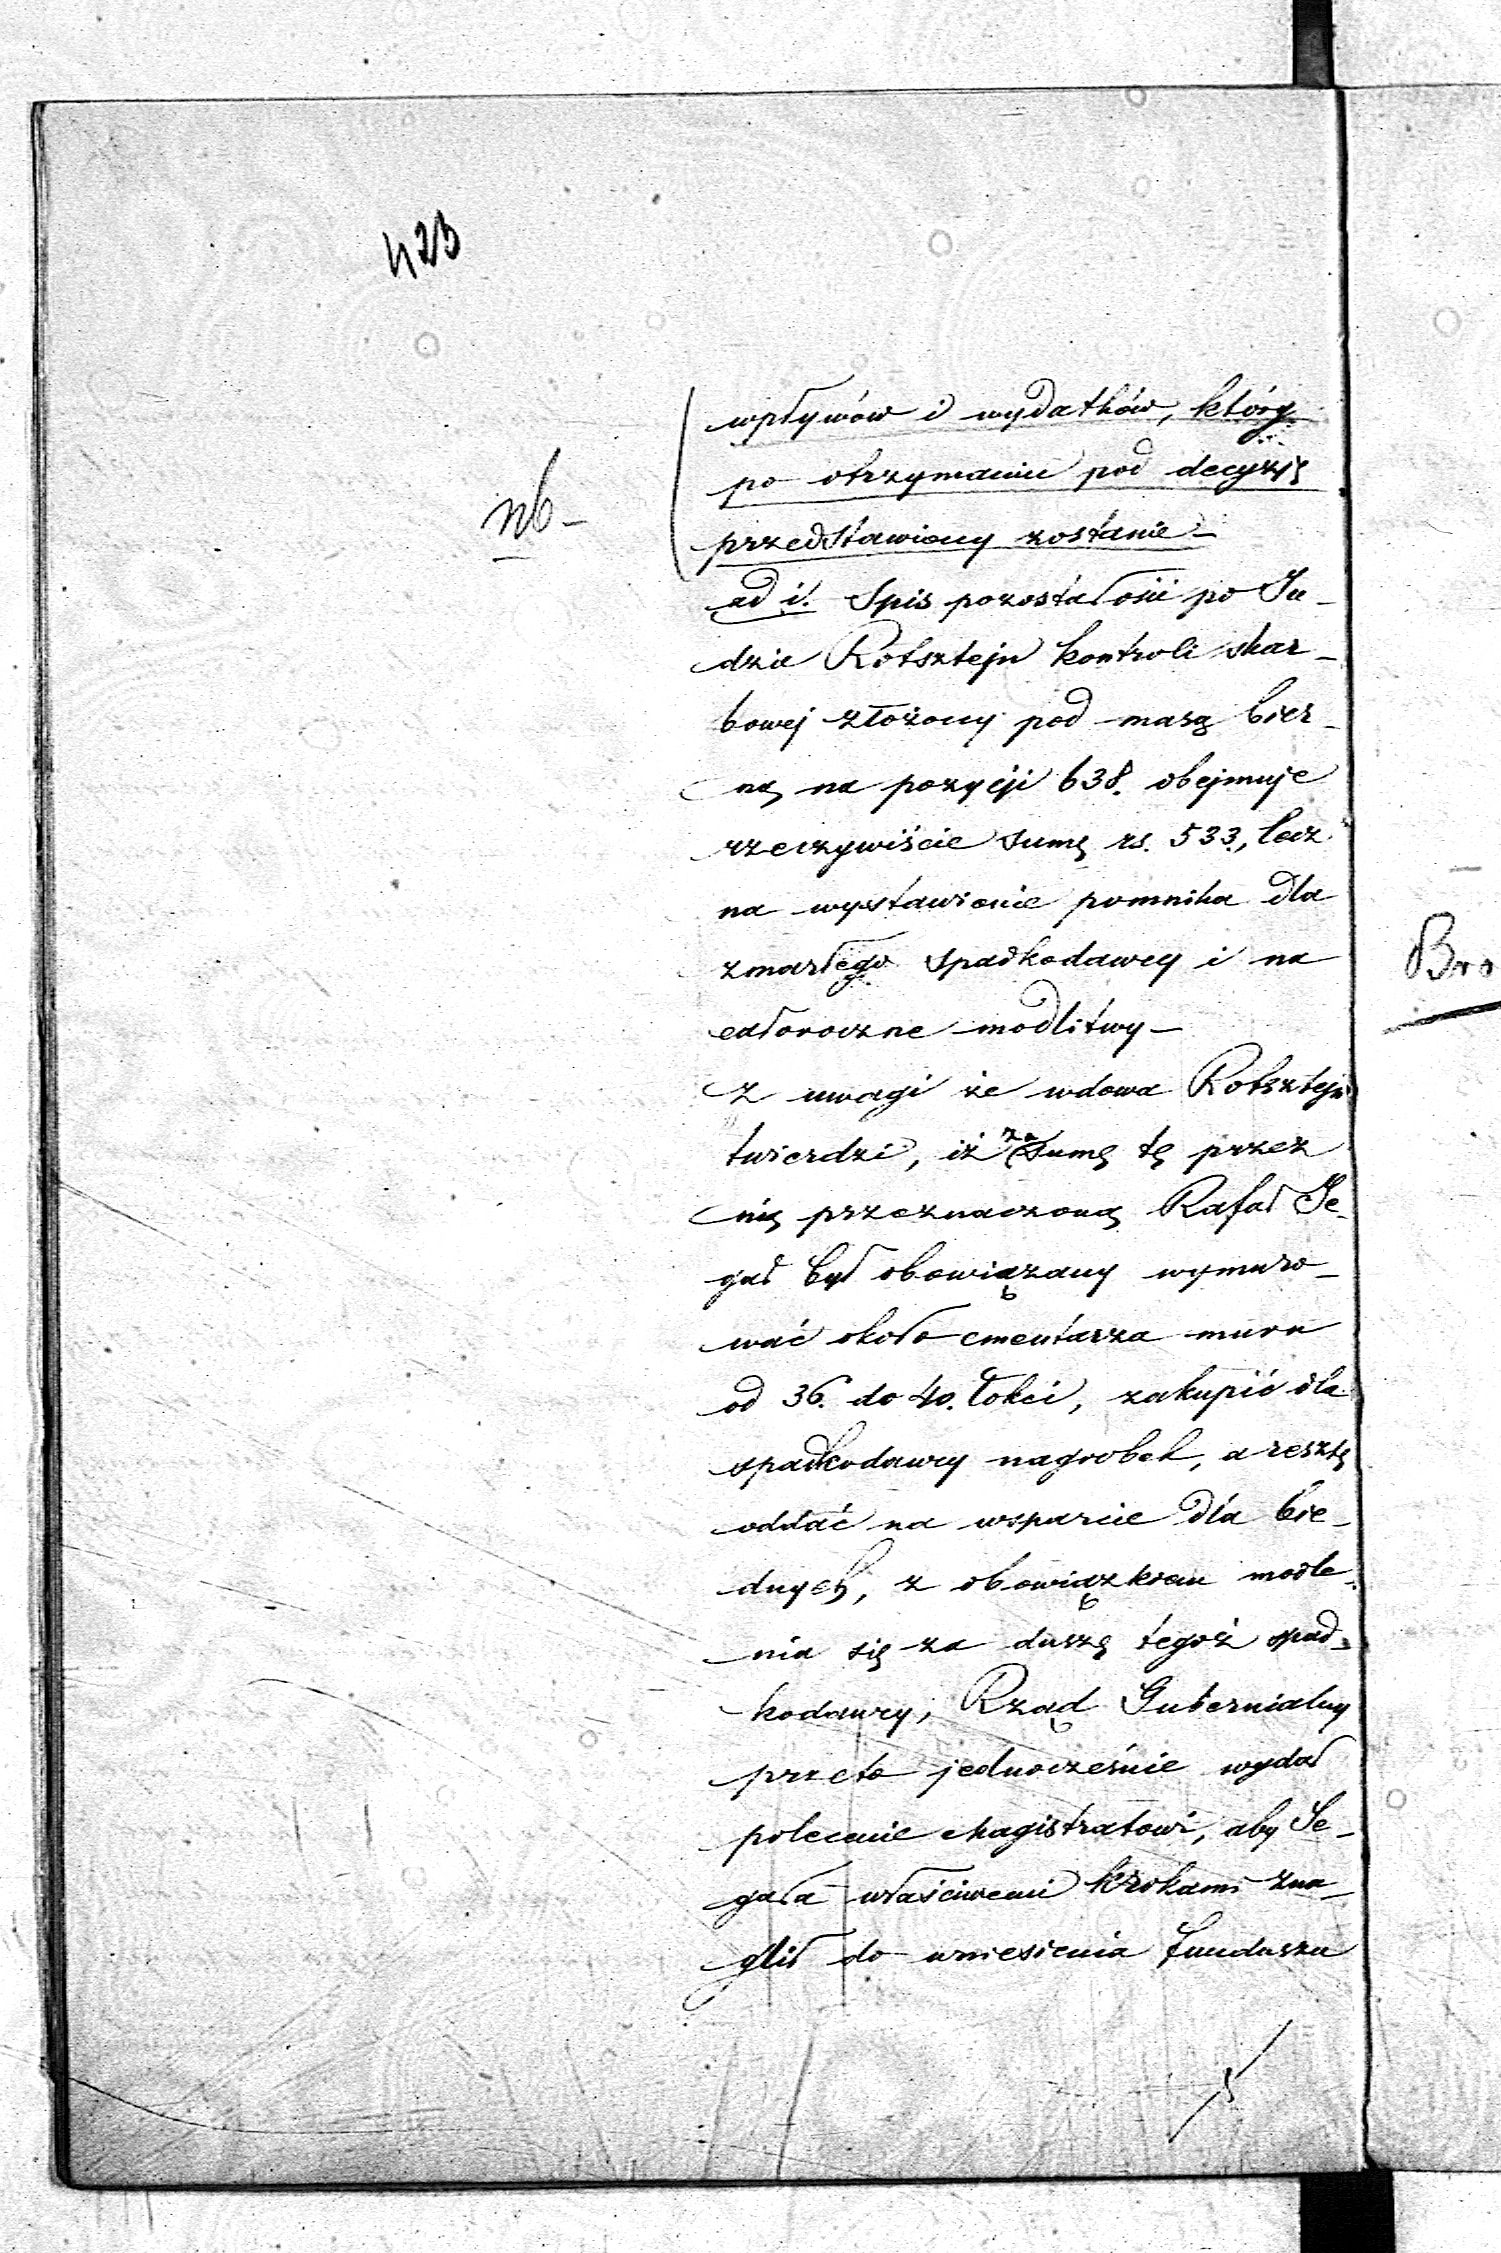 423
wpływów i wydatków, który
po otrzymaniu pod decyzję
nb-
przedstawiony zostanie-
ad i. Spis pozostałości po Ju-
dzie Rotsztejn kontroli skar-
bowej złożony pod masą bier-
ną na pozycji 638. obejmuje
rzeczywiście sumę rs. 533., lecz
na wystawienie pomnika dla
zmarłego spadkodawcy i na
Bro
całoroczne modlitwy-
Z uwagi że wdowa Rotsztejn
twierdzi, iż za sumę tę przez
nią przeznaczoną Rafał Se-
gał był obowiązany wymuro-
wać około cmentarza muru
od 36. do 40. łokci, zakupić dla
spadkodawcy nagrobek, a resztę
oddać na wsparcie dla bie-
dnych, z obowiązkiem modle-
nia się za duszę tegoż spad-
kodawcy, Rząd Gubernialny
przeto jednocześnie wydał
polecenie Magistratowi, aby Se-
gała właściwemi krokami zna-
glił do wniesienia funduszu